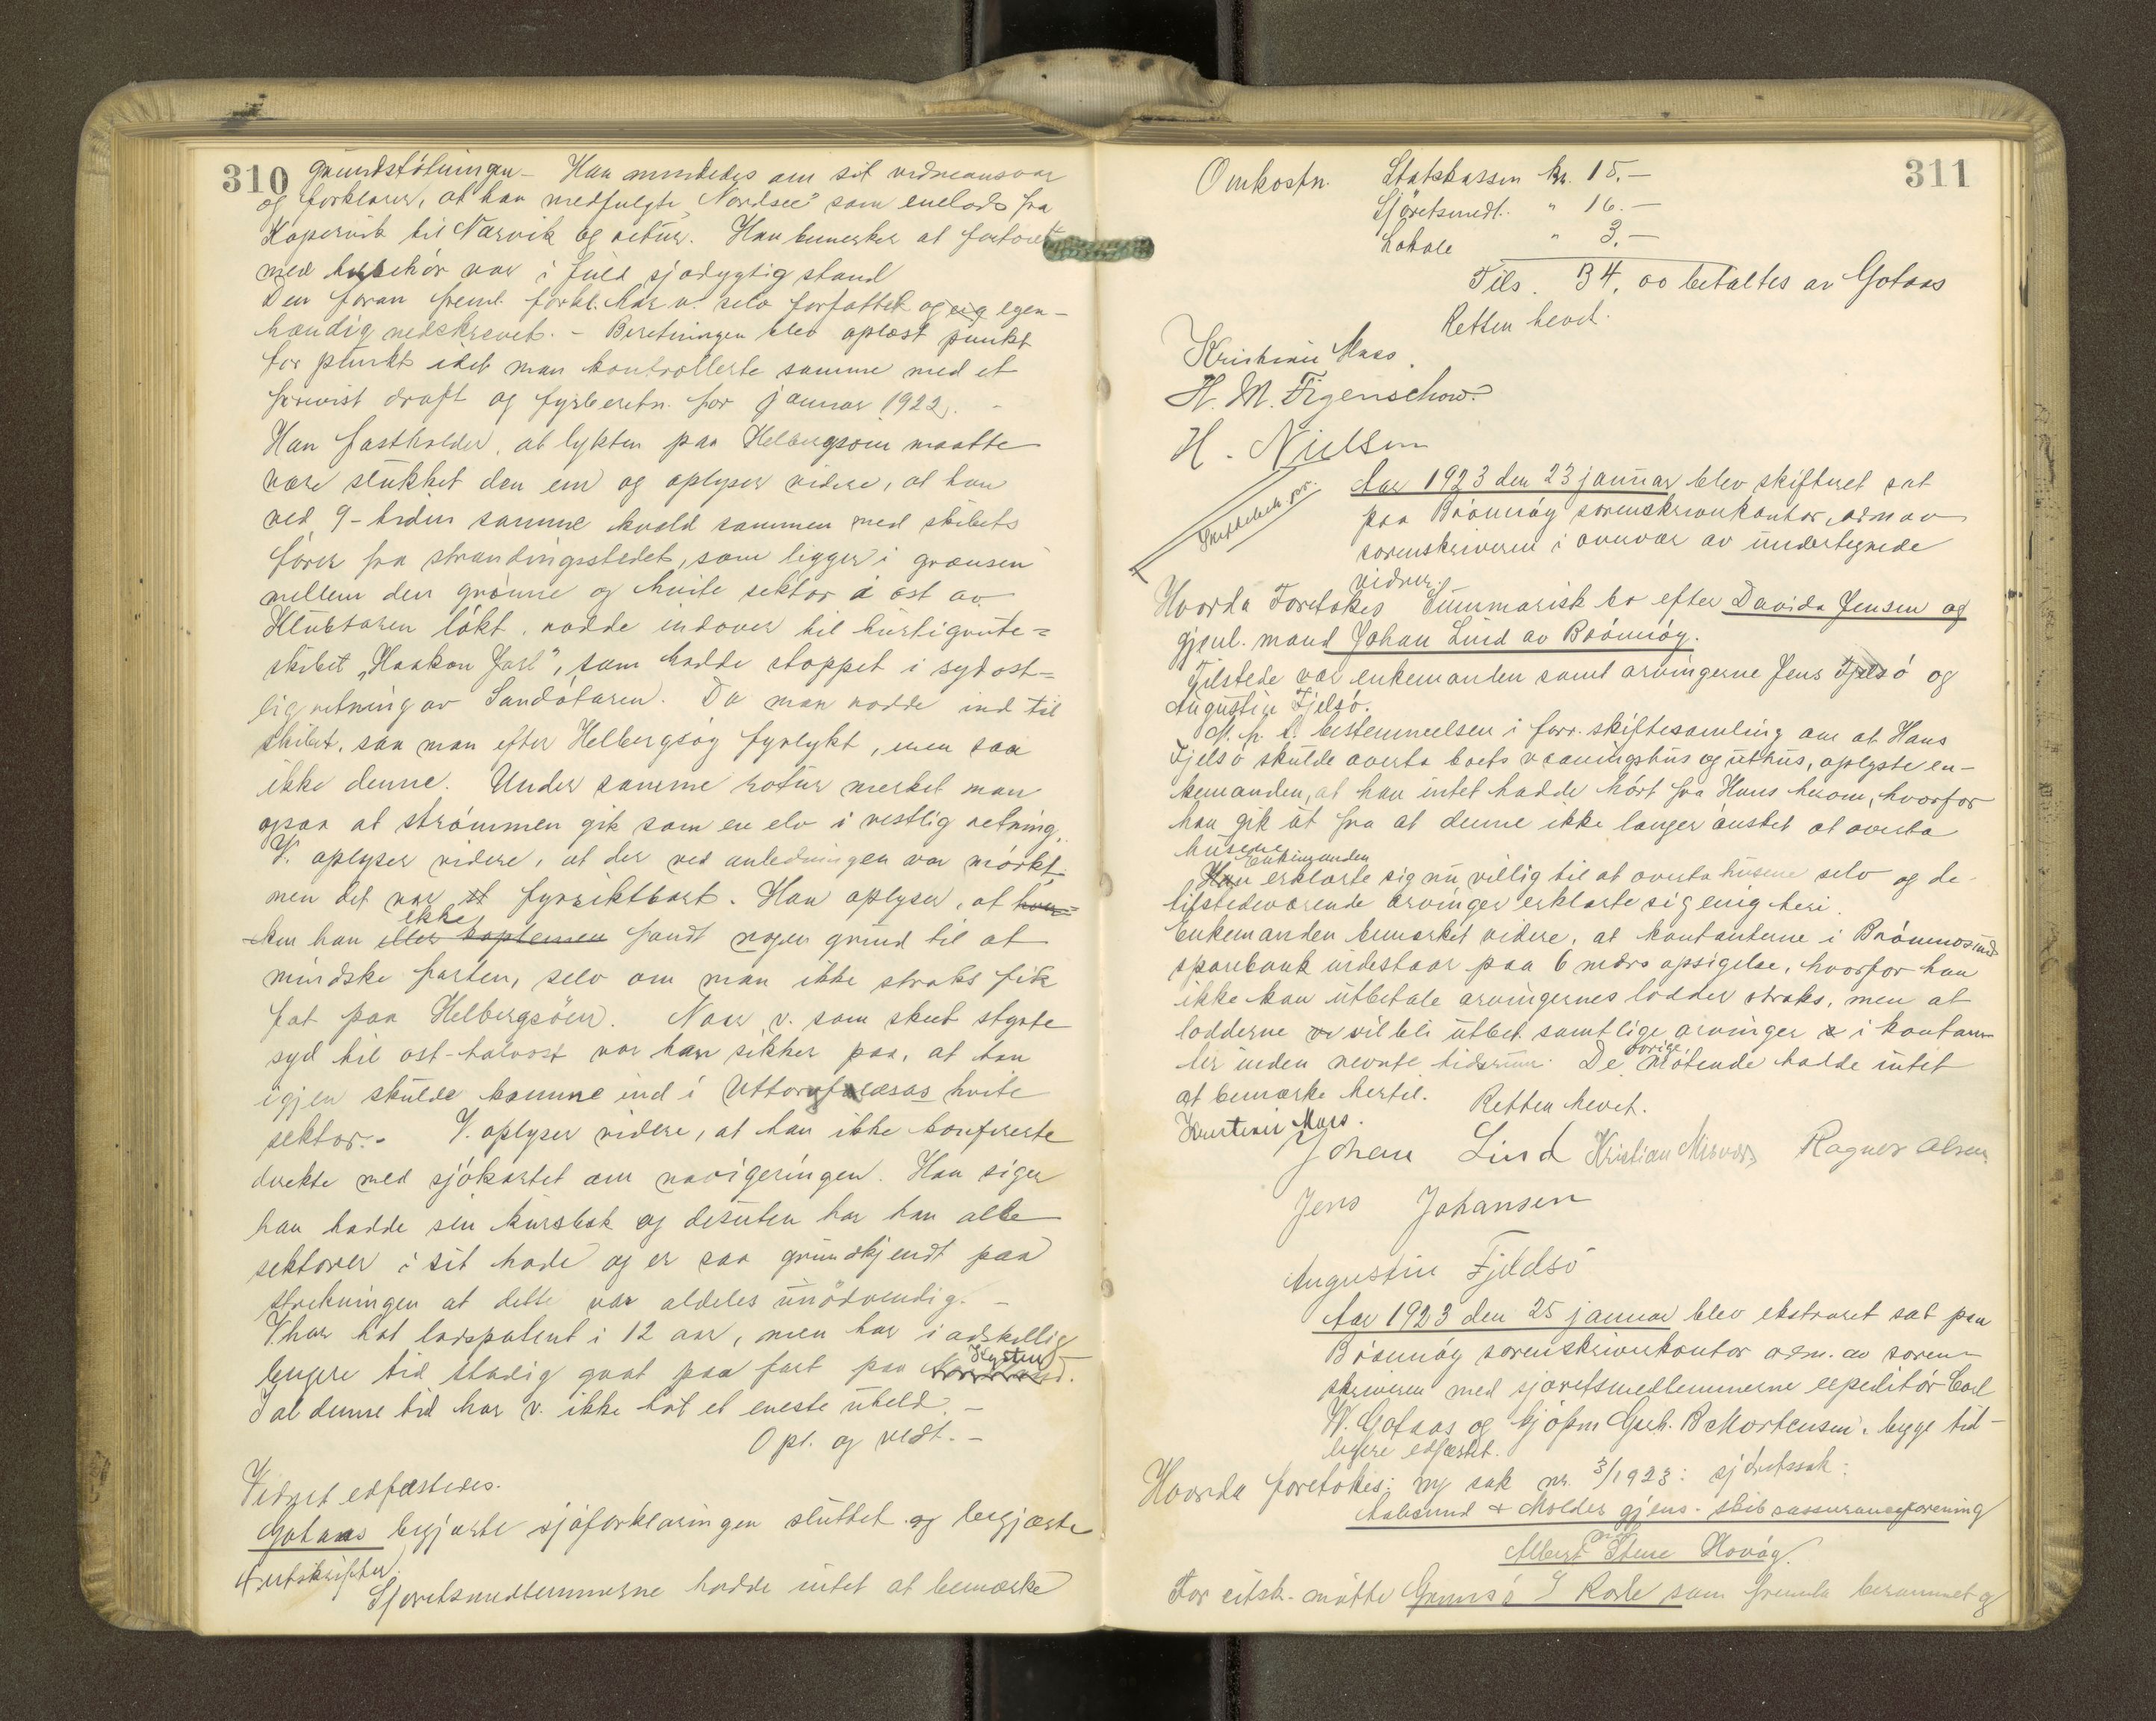 310
grundstötningen - Han mindedes om sit vidneansvar
og forklarer, at han medfulgte "Nordsee" som enelods fra
Kopervik til Narvik og retur. Han bemerker at fartoiet
med tilbehör var i fuld sjödygtig stand
Den foran freml. forkl. har v. selv forfattet og eig egen-
hændig nedskrevet. - Beretningen blev oplæst punkt
for punkt idet man kontrollerte samme med et
forevist draft og fyrberetn. for januar 1922. -
Han fastholder, at lykten paa Helbergsöin maatte
være slukket den em og oplyser videre, at han
ved 9-tiden samme kveld sammen med skibets
förer fra strandingsstedet, som ligger i grænsen
mellem den grönne og hvite sektor i ost av
Klubtaren lökt, rodde indover til hurtigrute-
skibet "Haakon Jarl", som hadde stoppet i sydost-
lig retning av Sandötaren. Da man rodde ind til
skibet, saa man efter Helbergsöy fyrlykt, men saa
ikke denne. Under samme rotur merket man
ogsaa at strömmen gik som en elv i vestlig retning.
V. oplyser videre, at der ved anledningen var mörkt,
men det var et fyrsiktbart. Han oplyser, at hver-
ken han eller kapteinen ikke fandt nogen grund til at
mindske farten, selv om man ikke straks fik
fat paa Helbergsöen. Naar v. som skeet styrte
syd til ost-halvost var han sikker paa, at han
igjen skulde komme ind i Uttorvfalæsas hvite
sektor. - V. oplyser videre, at han ikke konfererte
direkte med sjökartet om navigeringen. Han siger
han hadde sin kursbok og desuten har han alle
sektorer i sit hode og er saa grundkjendt paa
strekningen at dette var aldeles unödvendig. -
V. har hat lodspatent i 12 aar, men har i adskillig
lengere tid stadig gaat paa fart paa Kysten.
I al denne tid har v. ikke hat et eneste uheld. -
Opl. og vedt. -
Vidnet edfæstedes.
Gotaas begjærte sjöforklaringen sluttet og begjærte
4 utskrifter.
Sjoretsmedlemmerne hadde intet at bemærke
311
Omkostn. Statskassen kr. 15.-
Sjöretsmedl. " 16.-
Lokale " 3.-
Tils. 34,00 betaltes av Gotaas
Retten hevet.
Kristinir Maas.
H. M. Figenschow.
H. Nielsen
Aar 1923 den 23 januar blev skifteret sat
paa Brönnöy sorenskriverkontor, adm av
sorenskriveren i overvær av undertegnede
vidner.
Hvorda Foretokes Summarisk bo efter Davida Jensen og
gjenl. mand Johan Lind av Brönnöy.
Tilstede var enkemanden samt arvingerne Jens Fjelsö og
Augustin Fjelsö.
M. h. t. bestemmelsen i forr. skiftesamling om at Hans
Fjelsö skulde overta boets vaaningshus og uthus, oplyste en-
kemanden, at han intet hadde hört fra Hans herom, hvorfor
han gik ut fra at denne ikke længer önsket at overta
husene
Han Enkemanden erklærte sig nu villig til at overta husene selv og de
tilstedeværende arvinger erklærte sig enig heri.
Enkemanden bemerket videre, at kontanterne i Brönnösund
sparebank indestaar paa 6 mdrs opsigelse, hvorfor han
ikke kan utbetale arvingernes lodder straks, men at
lodderne vil bli utbet. samtlige arvinger i kontan-
ter inden nevnte tidsrum. De övrige mötende hadde intet
at bemærke hertil. Retten hevet.
Kristinir Maas.
Johan Lind Kristian Ragnar Olsen
Jens Johansen
Augustin Fjeldsö
Aar 1923 den 25 januar blev ekstraret sat paa
Brönnöy sorenskriverkontor adm. av soren-
skriveren med sjöretsmedlemmerne expeditör Carl
W. Gotaas og kjöpm Gerh. B Mortensen, begge tid-
ligere edfæstet.
Hvorda foretokes: ny sak nr. 3/1923: sjöretssak:
Aalesund & Molder gjens. skibsassuranceforening
mod
Albert Stene Havöy.
For citsk. mötte Grannsö I Rode som fremla berammet og